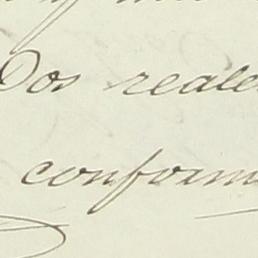 Dos reales
conform